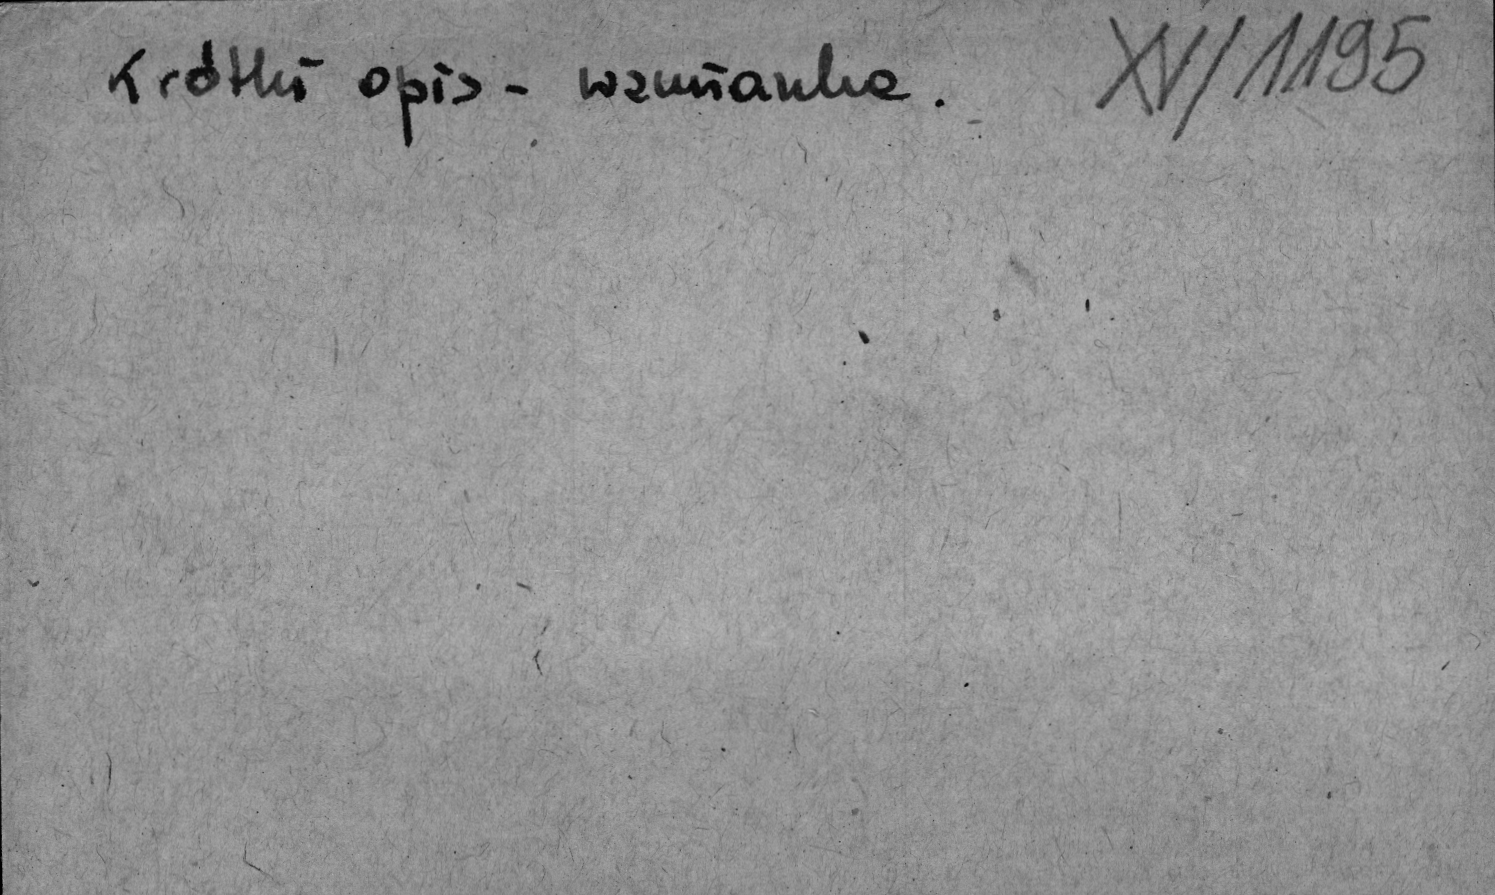 Krótki opis - wzmianka. XV/1195